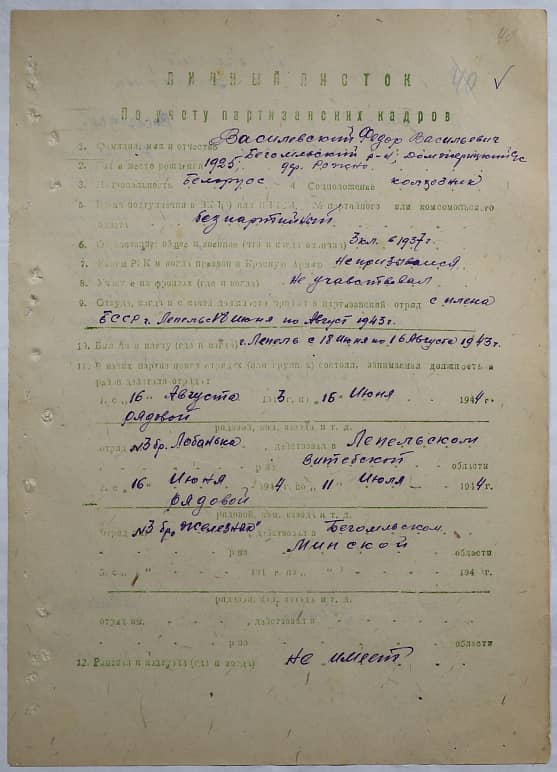 40
ЛИЧНЫЙ ЛИСТОК
По учету партизанских кадров
1. Фамилия, имя и отчество Василевский Федор Васильевич
2. Год и место рождения 1925 Бегомльский р-н,
дер.
3. Национальность Белорус 4 Соцположение колхозник
5. Время поступления в или № партийного или комсомольского
билета беспартийный
6. Образование общее и военное (что и когда окончил) 3 кл. в 1937г.
7. Каким РВК и когда призван в Красную Армию Не призывался
8. Участие на фронтах (где и когда) Не участвовал
9. Откуда, когда и с какой должности прибыл в партизанский отряд с плена
БССР г. Лепель с 18 июня по Август 1943г.
10. Был ли в плену (где и когда) г. Лепель с 18 июня по 16 Августа 1943г.
11. В каких партизанских отрядах (или группах) состоял, занимаемая должность и
район действия отряда:
1. с "16" Августа 1943г. по "16" Июня 1944г.
рядовой
рядовой, ком. взвода и т. д.
отряд №3 бр. Лобанька, действовал в Лепельском
р-не Витебской области
2. с "16" Июня 1944г. по "11" Июля 1944г.
рядовой
рядовой, ком. взвода и т. д.
отряд №3 бр. "Железняк", действовал в Бегомльском
р-не Минской области
3. с " " 194 г. по " " 194 г.
рядовой, ком. взвода и т. д.
отряд им. , действовал в
р-не области
12. Ранения и контузии (где и когда) не имеет